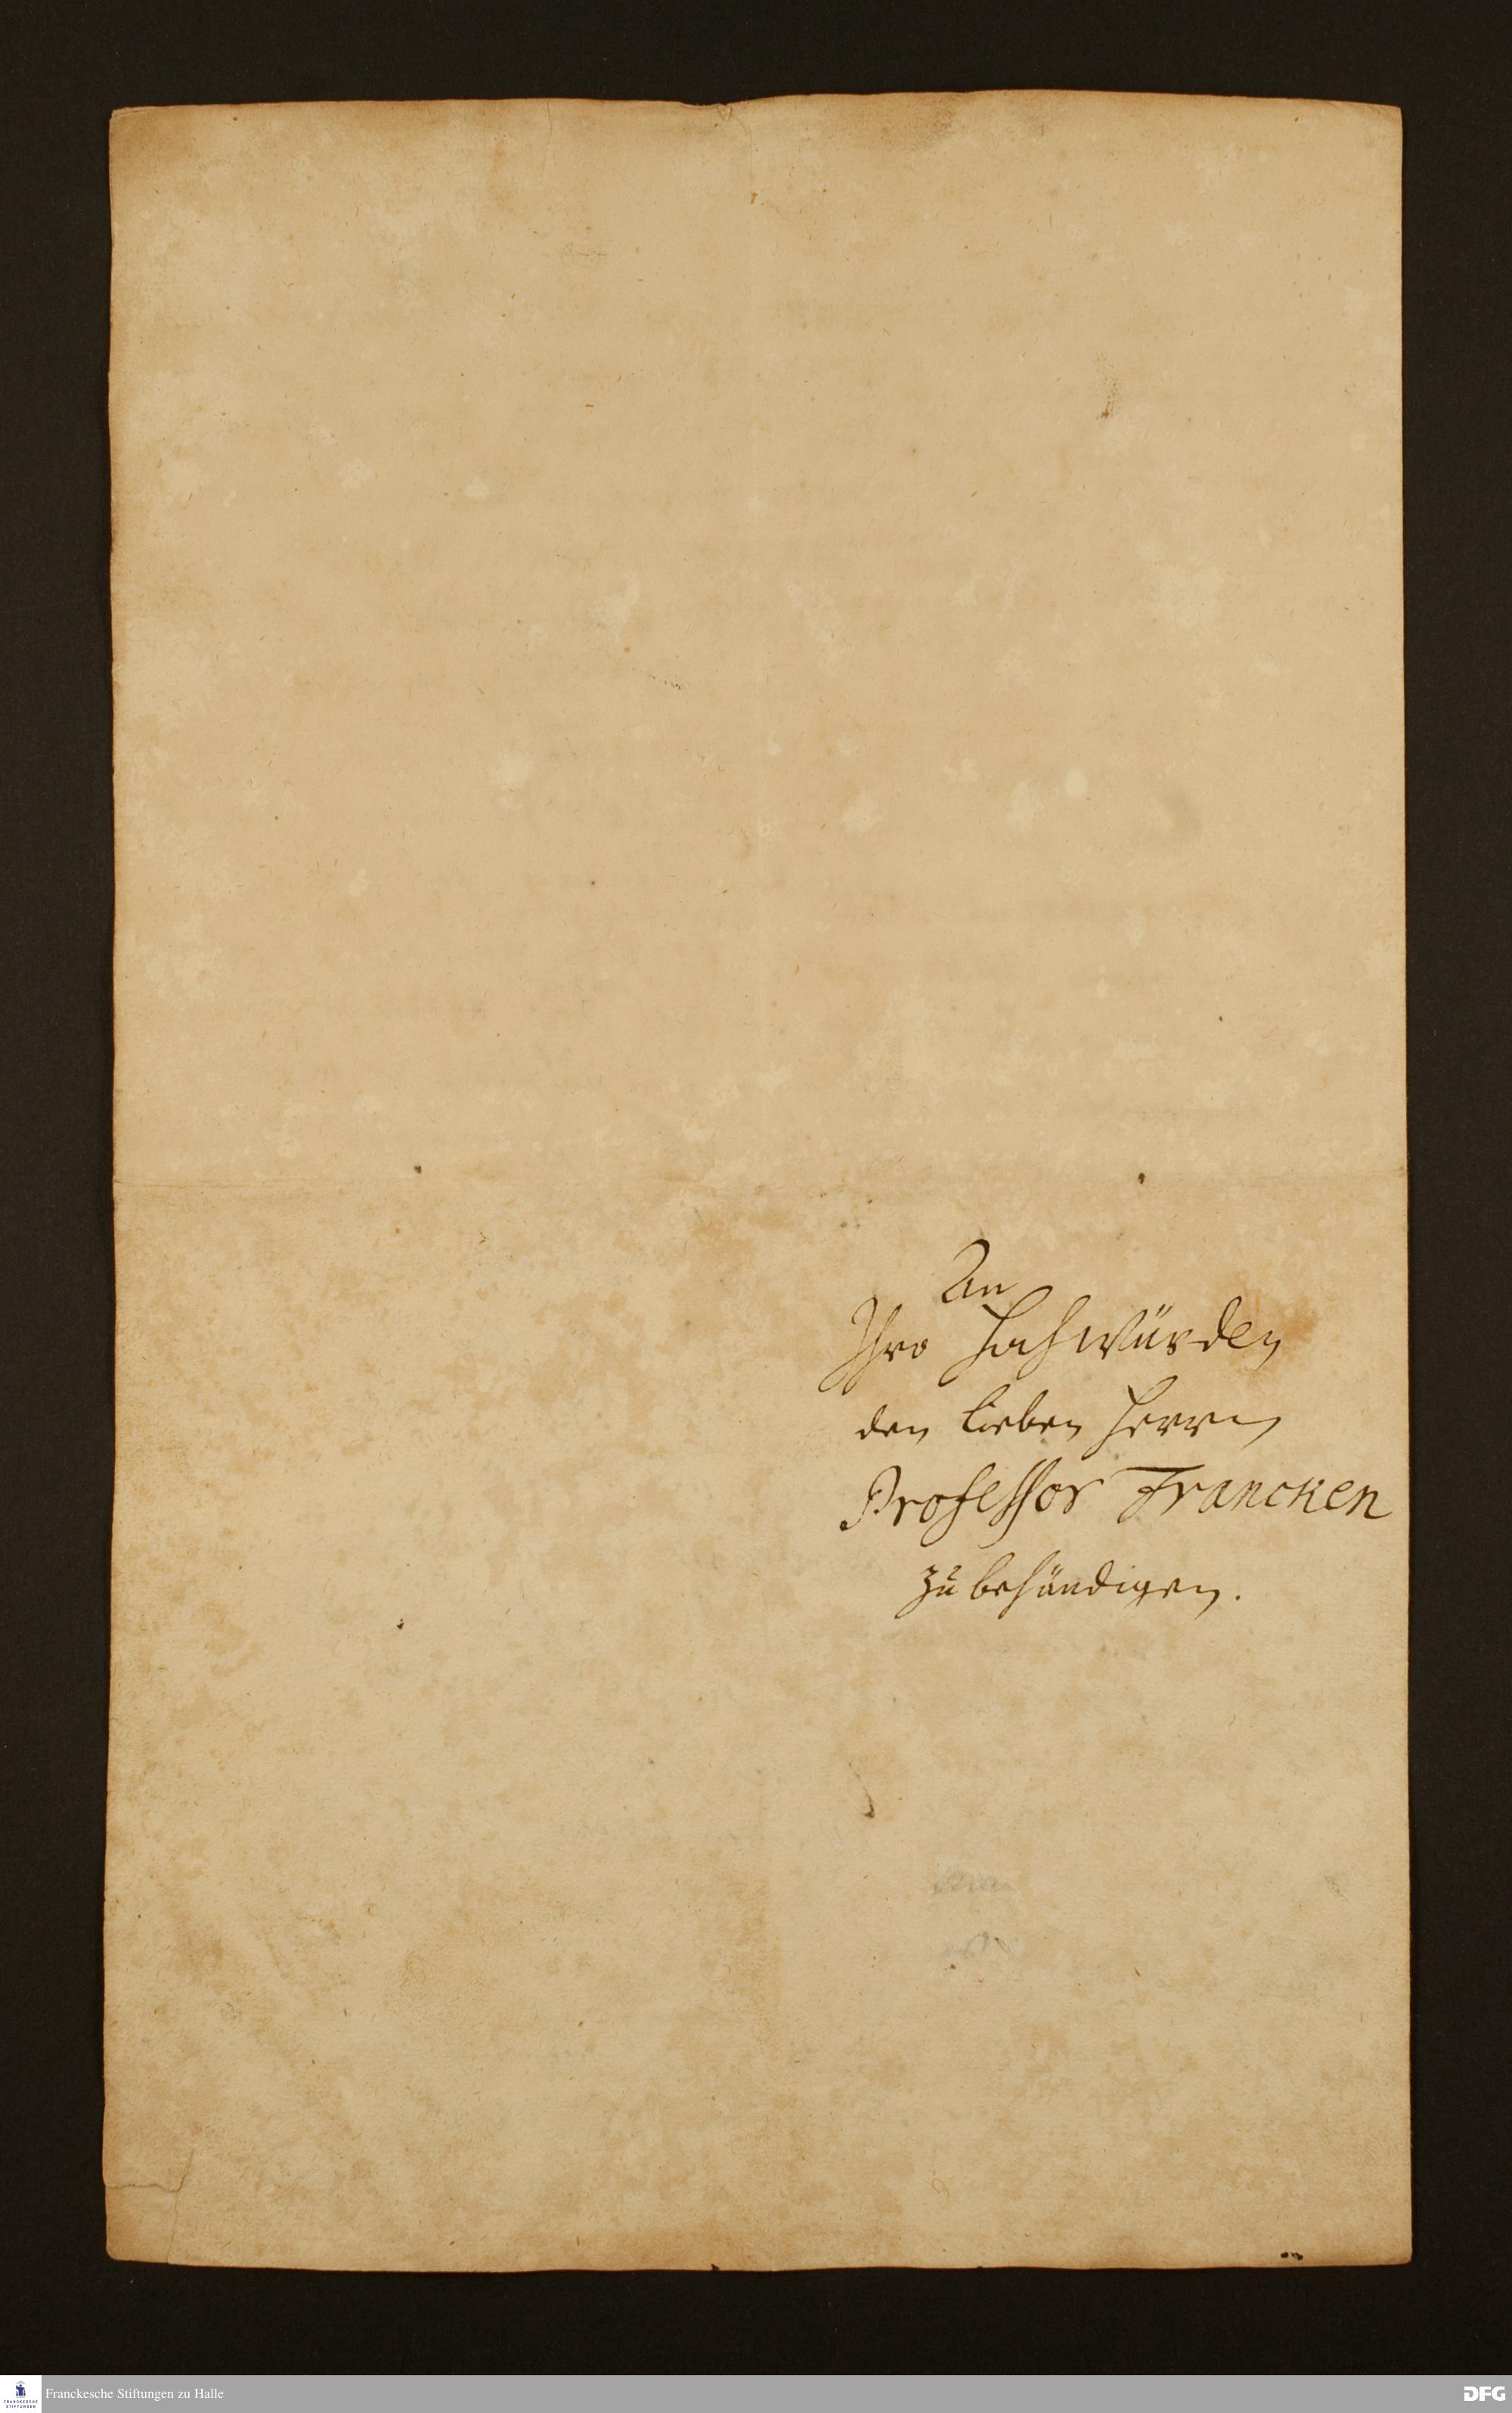 An
Ihro Hochwürden
den lieben Herrn
Professor Francken
zu behändigen.
Franckesche Stiftungen zu Halle
FRANCKESCHE
STIFTUNGEN
DFG